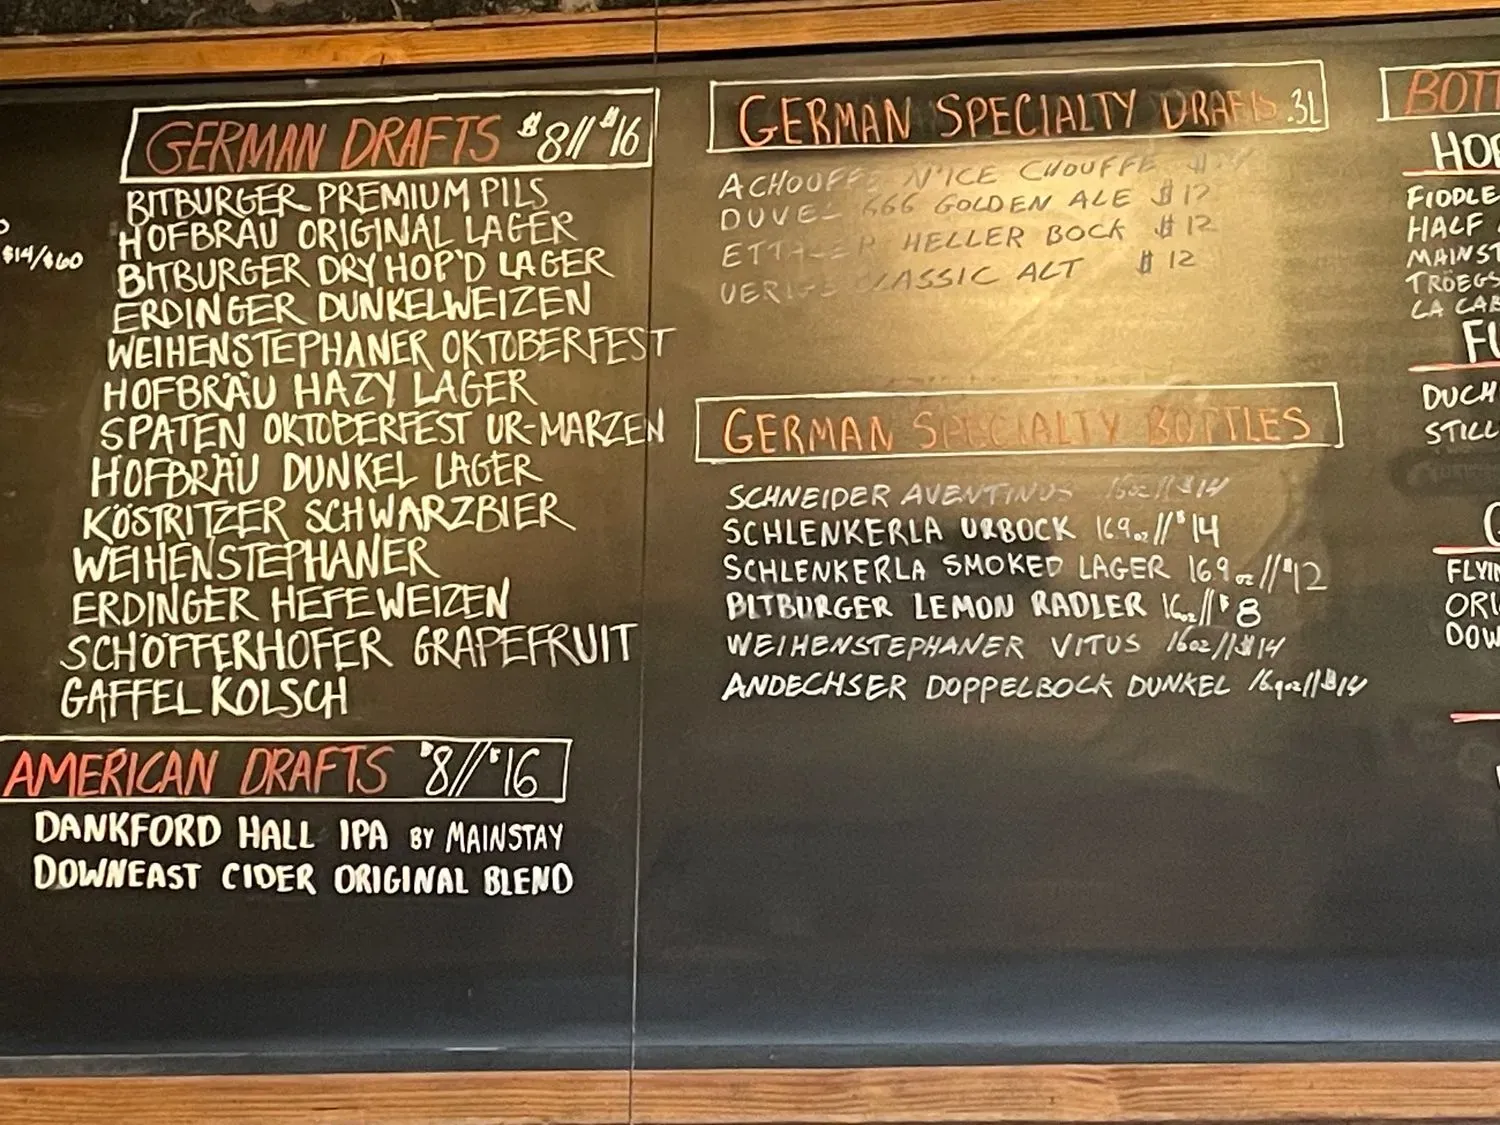 GERMAN DRAFTS $8//$16
BITBURGER PREMIUM PILS
HOFBRÄU ORIGINAL LAGER
BITBURGER DRY HOP'D LAGER
ERDINGER DUNKELWEIZEN
WEIHENSTEPHANER OKTOBERFEST
HOFBRÄU HAZY LAGER
SPATEN OKTOBERFEST UR-MARZEN
HOFBRÄU DUNKEL LAGER
KÖSTRITZER SCHWARZBIER
WEIHENSTEPHANER
ERDINGER HEFEWEIZEN
SCHÖFFERHOFER GRAPEFRUIT
GAFFEL KOLSCH
$14/$60
AMERICAN DRAFTS $8//$16
DANKFORD HALL IPA BY MAINSTAY
DOWNEAST CIDER ORIGINAL BLEND
GERMAN SPECIALTY DRAFTS .3L
ACHOUFFE N'ICE CHOUFFE
DUVEL 666 GOLDEN ALE $12
ETTALER HELLER BOCK $12
UERIGE CLASSIC ALT $12
GERMAN SPECIALTY BOTTLES
SCHNEIDER AVENTINUS 16oz//$14
SCHLENKERLA URBOCK 16.9oz//$14
SCHLENKERLA SMOKED LAGER 16.9oz//$12
BITBURGER LEMON RADLER 16oz//$8
WEIHENSTEPHANER VITUS 16oz//$14
ANDECHSER DOPPELBOCK DUNKEL 16.9oz//$14
BOTT
HOP
FIDDLE
HALF
MAINST
TRÖEGS
LA CAB
FU
DUCH
STILL
FLYIN
ORI
DOW